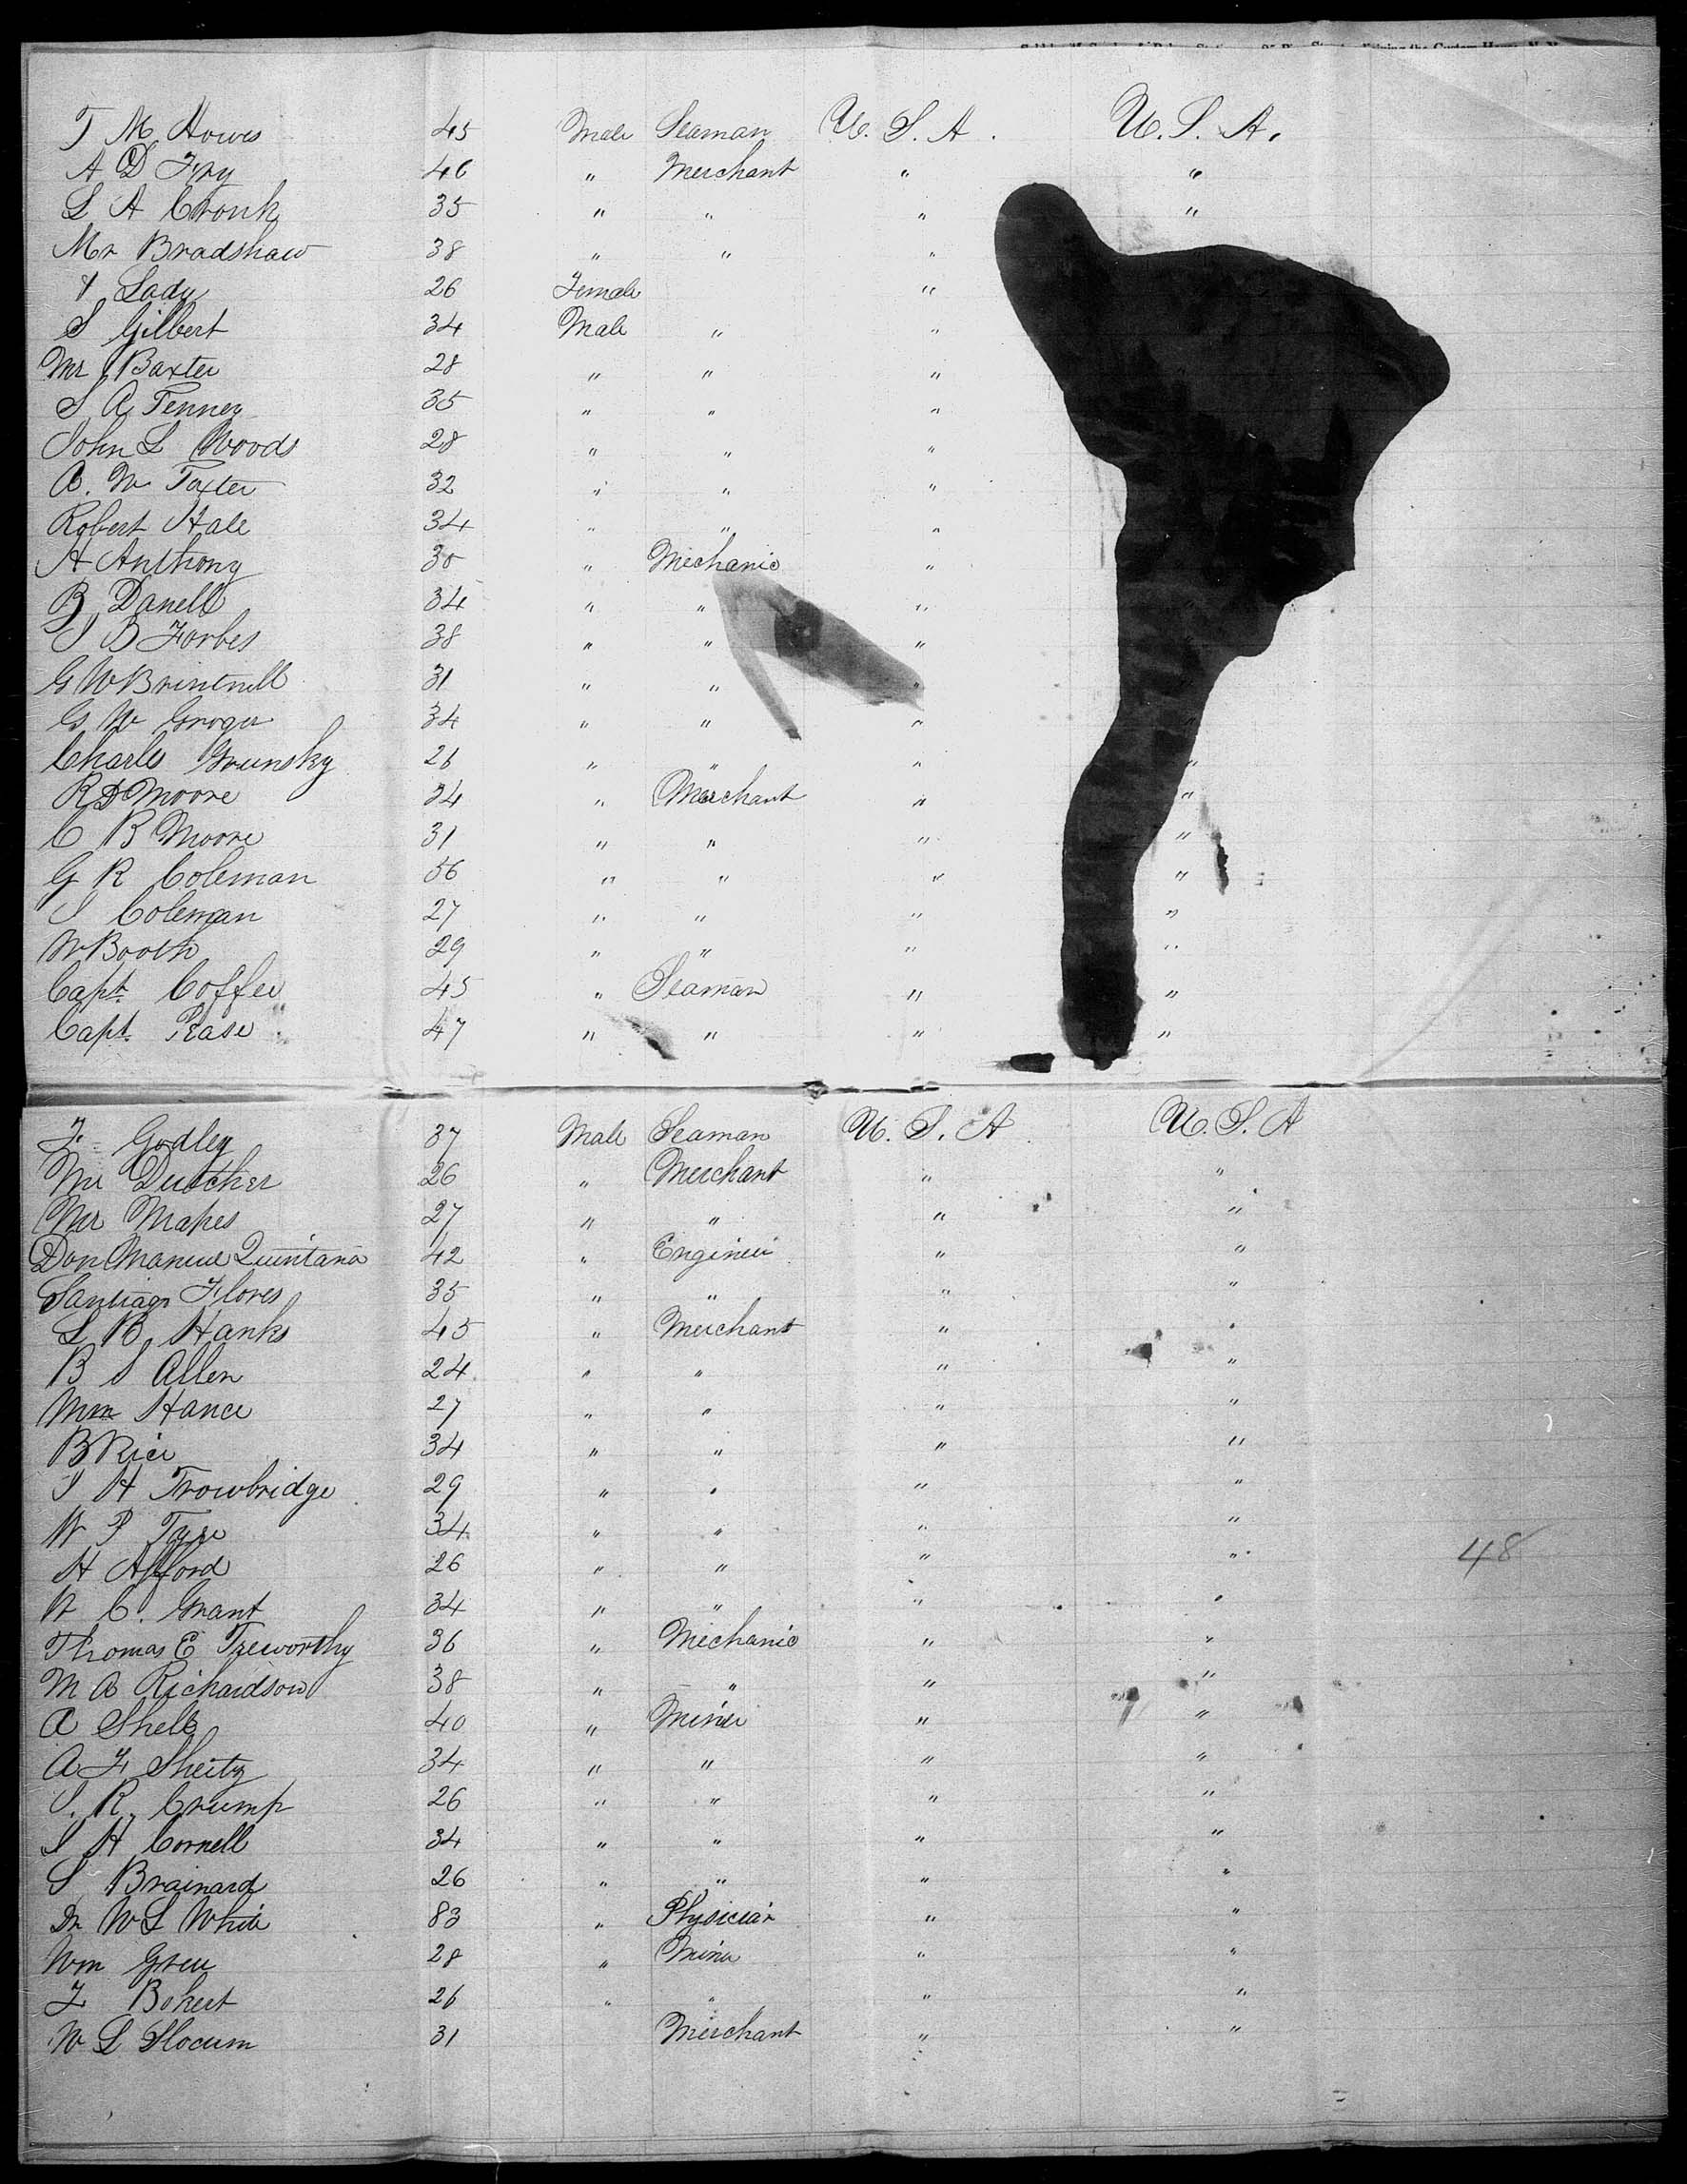 T M Howes 45 Male Seaman U. S. A. U. S. A.
A D Fry 46 " Merchant " "
L A Cronk 35 " " " "
Mr Bradshaw 38 " " "
& Lady 26 Female "
S Gilbert 34 Male " "
Mr Baxter 28 " " "
S A Tenney 35 " " "
John L Woods 28 " " "
A. W Faxter 32 " " "
Robert Hale 34 " " "
A Anthony 30 " Mechanic "
B Danell 34 " " "
S B Forbes 38 " " "
G W Brintnell 31 " " "
G W Groger 34 " " "
Charles Grunsky 26 " " " "
R D Moore 34 " Merchant " "
C B Moore 31 " " " "
G R Coleman 56 " " " "
S Coleman 27 " " " "
W Booth 29 " " " "
Capt. Coffee 45 " Seaman " "
Capt. Pease 47 " " " "
F. Godley 37 Male Seaman U. S. A U. S. A
Mr Dutcher 26 " Merchant " "
Mr Mapes 27 " " " "
Don Manuel Quintana 42 " Engineer " "
Santiago Flores 35 " " " "
L B Hanks 45 " Merchant " "
B S Allen 24 " " " "
Wm Hance 27 " " " "
B Rice 34 " " " "
S H Trowbridge 29 " " " "
W P Tyre 34 " " " "
H Afford 26 " " " " 48
W C. Grant 34 " " " "
Thomas E Treworthy 36 " Mechanic " "
M A Richardson 38 " " " "
A Shelb 40 " Miner " "
A F Sheitz 34 " " " "
S. R. Crump 26 " " " "
S H Cornell 34 " " " "
S Brainard 26 " " " "
Dr W L White 83 " Physician " "
Wm Green 28 " Miner " "
F Bokert 26 " " " "
W L Slocum 31 Merchant " "